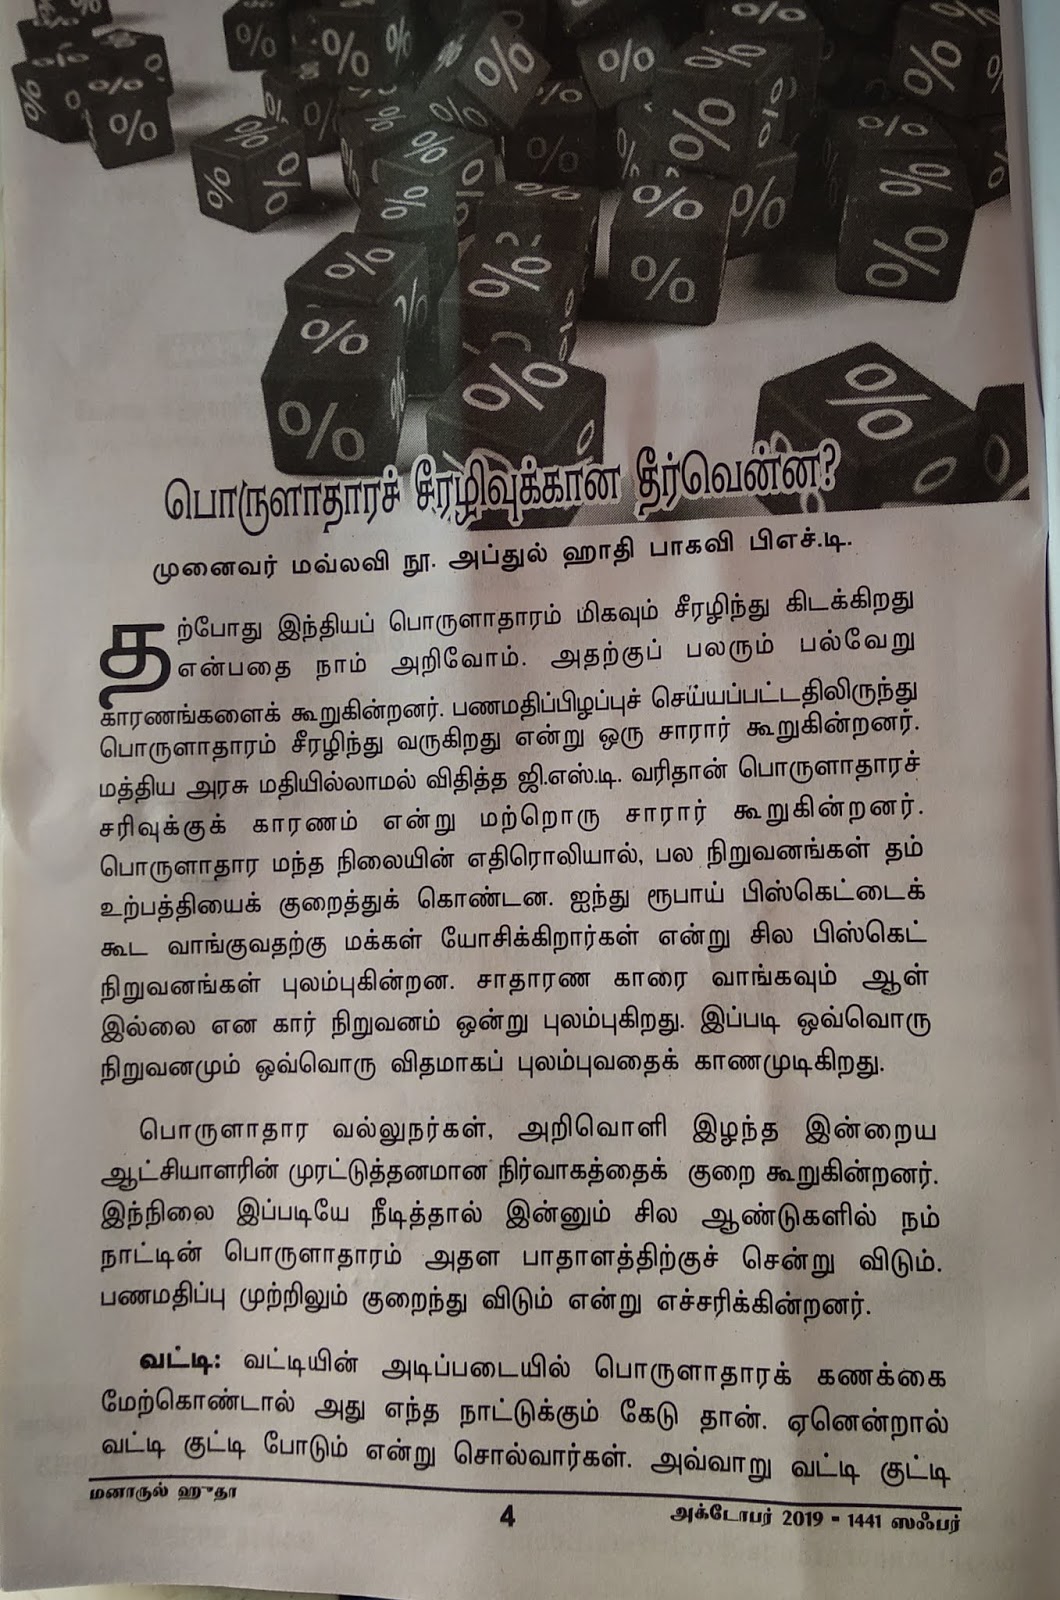 பொருளாதாரச் சீரழிவுக்கான தீர்வென்ன?
முனைவர் மவ்லவி நூ. அப்துல் ஹாதி பாகவி பிஎச்.டி.
தற்போது இந்தியப் பொருளாதாரம் மிகவும் சீரழிந்து கிடக்கிறது
என்பதை நாம் அறிவோம். அதற்குப் பலரும் பல்வேறு
காரணங்களைக் கூறுகின்றனர். பணமதிப்பிழப்புச் செய்யப்பட்டதிலிருந்து
பொருளாதாரம் சீரழிந்து வருகிறது என்று ஒரு சாரார் கூறுகின்றனர்.
மத்திய அரசு மதியில்லாமல் விதித்த ஜி.எஸ்.டி. வரிதான் பொருளாதாரச்
சரிவுக்குக் காரணம் என்று மற்றொரு சாரார் கூறுகின்றனர்.
பொருளாதார மந்த நிலையின் எதிரொலியால், பல நிறுவனங்கள் தம்
உற்பத்தியைக் குறைத்துக் கொண்டன. ஐந்து ரூபாய் பிஸ்கெட்டைக்
கூட வாங்குவதற்கு மக்கள் யோசிக்கிறார்கள் என்று சில பிஸ்கெட்
நிறுவனங்கள் புலம்புகின்றன. சாதாரண காரை வாங்கவும் ஆள்
இல்லை என கார் நிறுவனம் ஒன்று புலம்புகிறது. இப்படி ஒவ்வொரு
நிறுவனமும் ஒவ்வொரு விதமாகப் புலம்புவதைக் காணமுடிகிறது.
பொருளாதார வல்லுநர்கள், அறிவொளி இழந்த இன்றைய
ஆட்சியாளரின் முரட்டுத்தனமான நிர்வாகத்தைக் குறை கூறுகின்றனர்.
இந்நிலை இப்படியே நீடித்தால் இன்னும் சில ஆண்டுகளில் நம்
நாட்டின் பொருளாதாரம் அதள பாதாளத்திற்குச் சென்று விடும்.
பணமதிப்பு முற்றிலும் குறைந்து விடும் என்று எச்சரிக்கின்றனர்.
வட்டி: வட்டியின் அடிப்படையில் பொருளாதாரக் கணக்கை
மேற்கொண்டால் அது எந்த நாட்டுக்கும் கேடு தான். ஏனென்றால்
வட்டி குட்டி போடும் என்று சொல்வார்கள். அவ்வாறு வட்டி குட்டி
மனாருல் ஹுதா
4
அக்டோபர் 2019 - 1441 ஸஃபர்